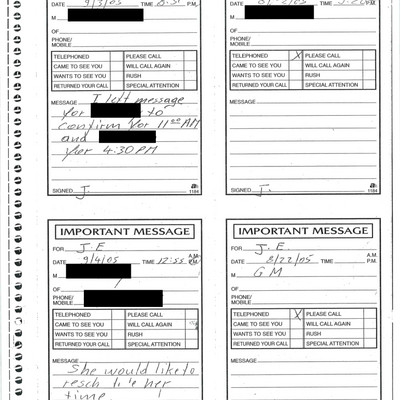 DATE 9/3/05 TIME P.M.
M
OF
PHONE/
MOBILE
TELEPHONED PLEASE CALL
CAME TO SEE YOU WILL CALL AGAIN
WANTS TO SEE YOU RUSH
RETURNED YOUR CALL SPECIAL ATTENTION
MESSAGE I left message
for to
confirm for 11 00 AM
and
for 4:30 PM
SIGNED J. 1184
DATE TIME P.M.
M
OF
PHONE/
MOBILE
TELEPHONED X PLEASE CALL
CAME TO SEE YOU WILL CALL AGAIN
WANTS TO SEE YOU RUSH
RETURNED YOUR CALL SPECIAL ATTENTION
MESSAGE
SIGNED J. 1184
IMPORTANT MESSAGE
FOR J.E
A.M.
DATE 9/4/05 TIME 12:55 P.M.
M
OF
PHONE/
MOBILE
TELEPHONED PLEASE CALL
CAME TO SEE YOU WILL CALL AGAIN
WANTS TO SEE YOU RUSH
RETURNED YOUR CALL SPECIAL ATTENTION
MESSAGE
She would like to
her
time
IMPORTANT MESSAGE
FOR J.E.
A.M.
DATE 8/22/05 TIME P.M.
M GM
OF
PHONE/
MOBILE
TELEPHONED X PLEASE CALL
CAME TO SEE YOU WILL CALL AGAIN
WANTS TO SEE YOU RUSH
RETURNED YOUR CALL SPECIAL ATTENTION
MESSAGE